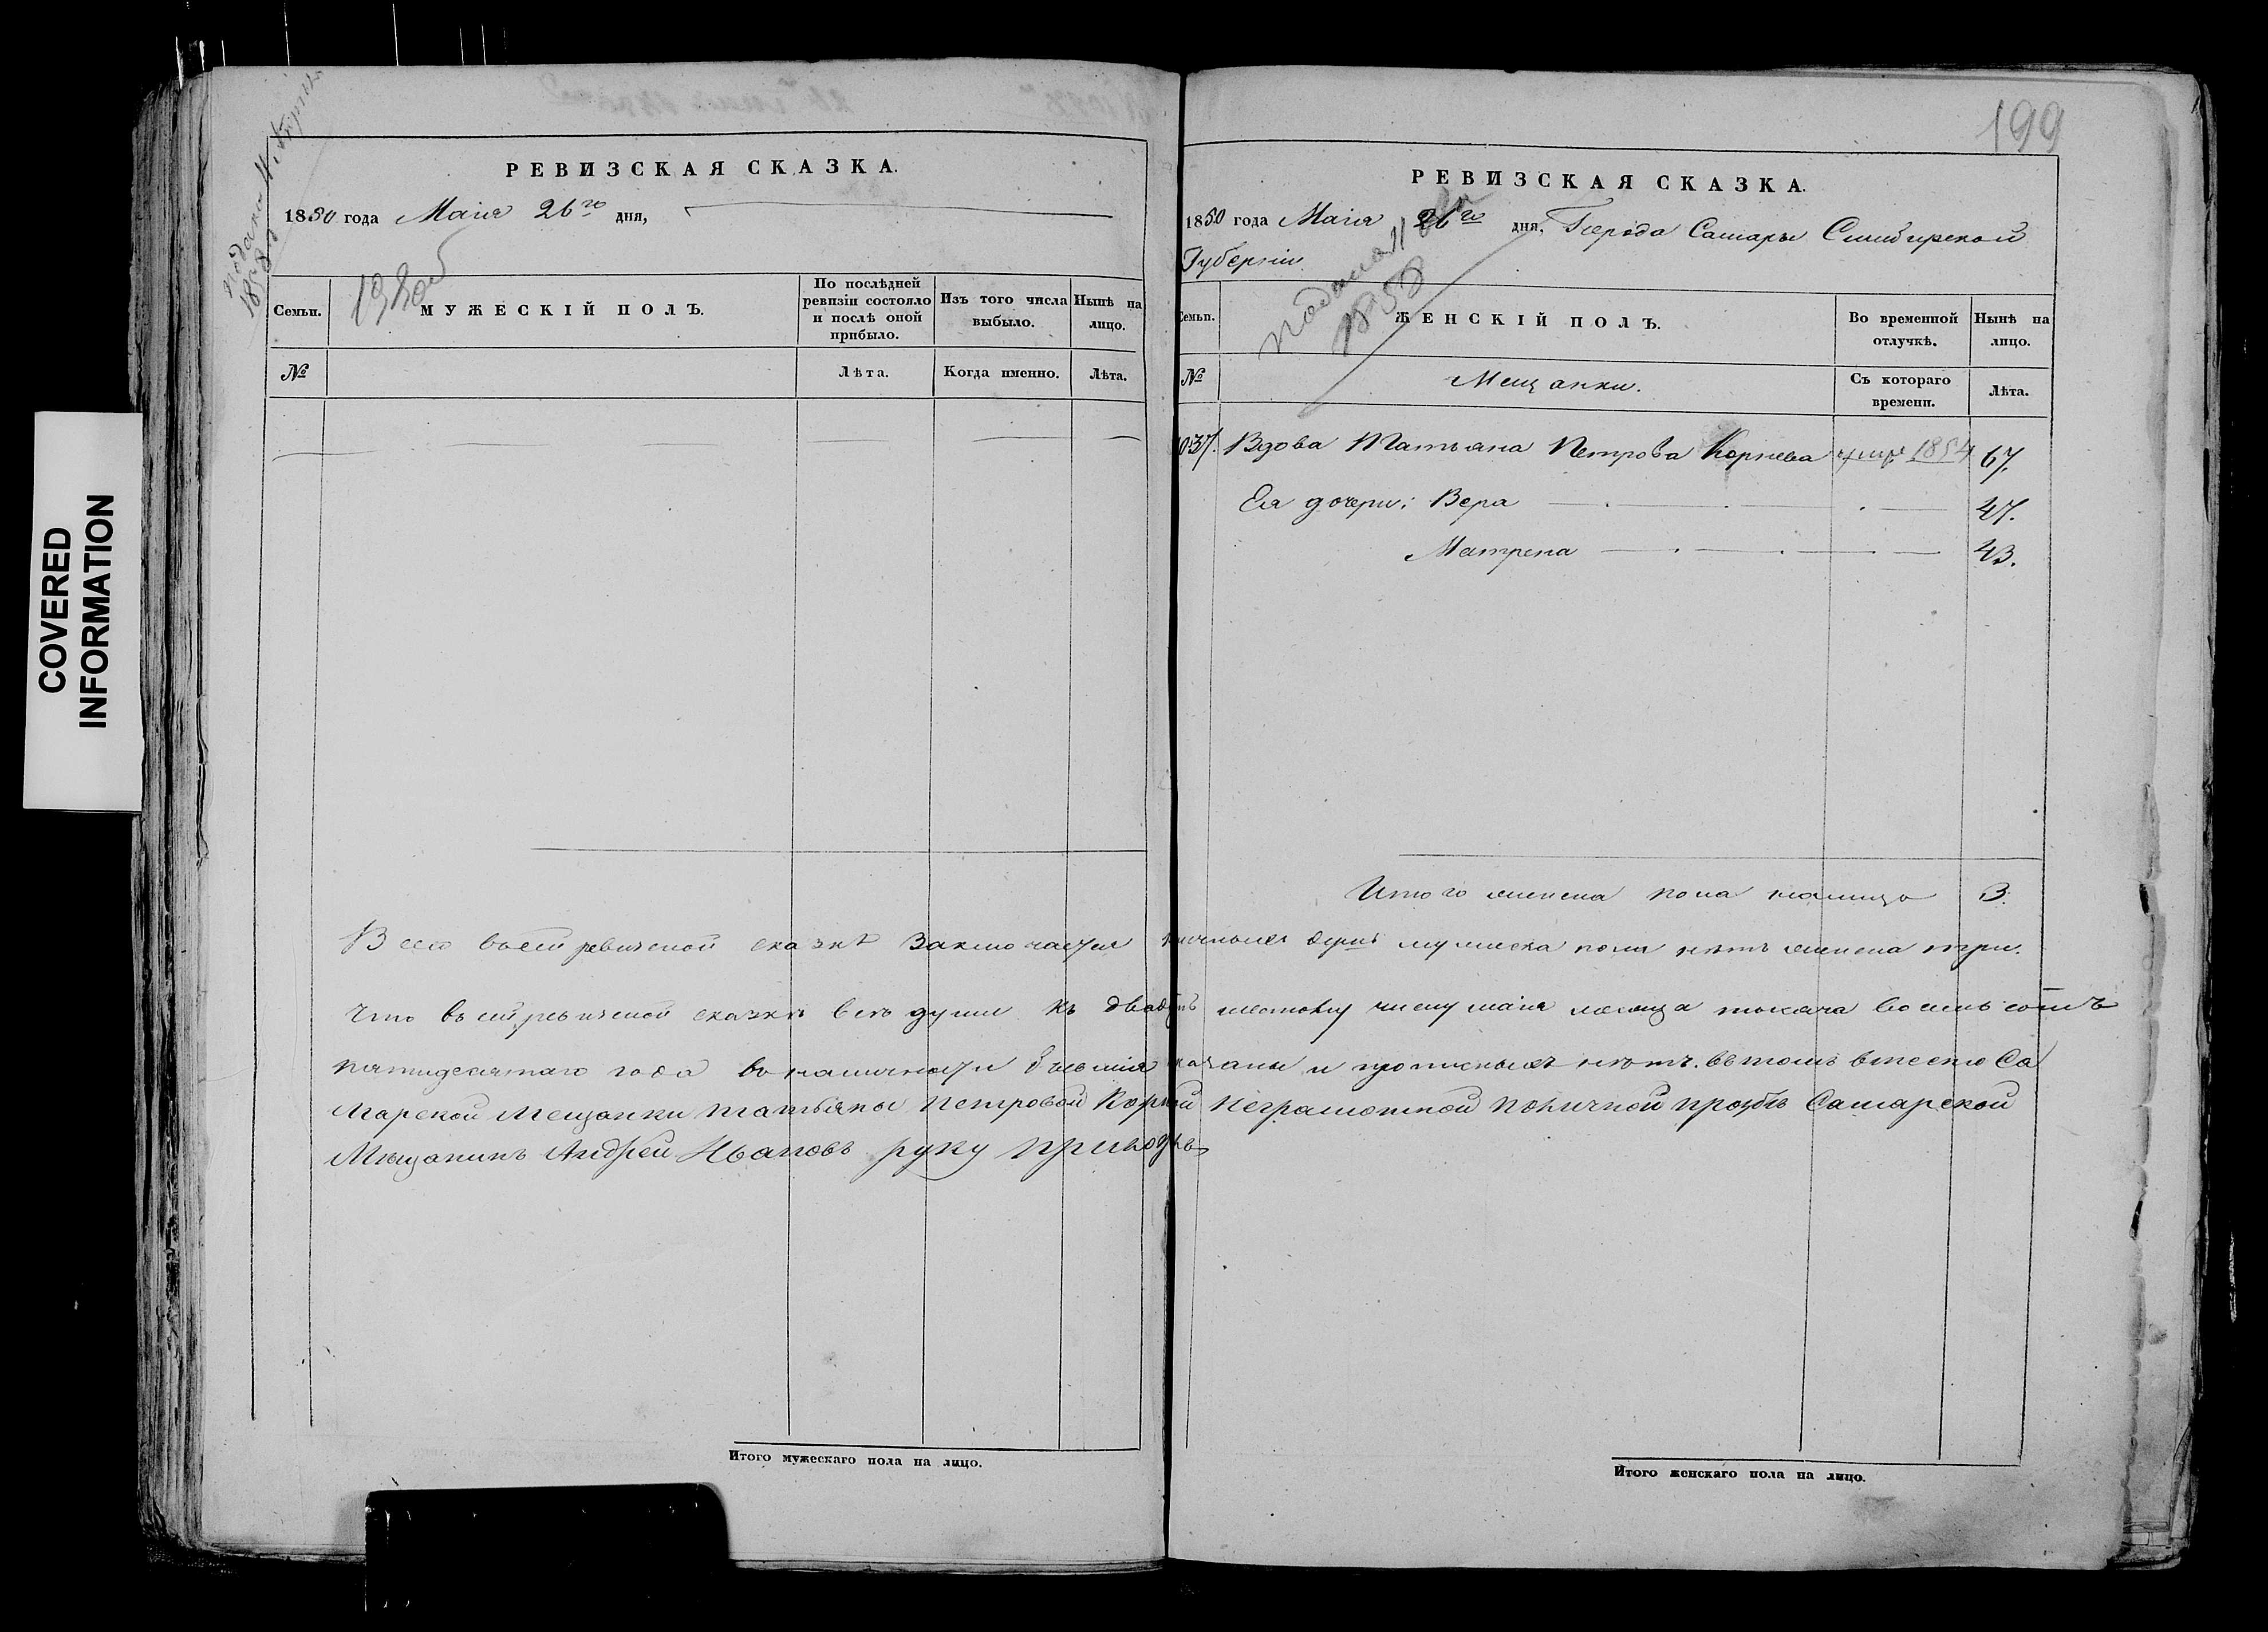 COVERED
INFORMATION
РЕВИЗСКАЯ СКАЗКА.
1850 года Маія 26го дня,
Семьи.
МУЖЕСКІЙ ПОЛЪ.
По послѣдней ревизіи состояло и послѣ оной прибыло.
Изъ того числа выбыло.
Нынѣ на лицо.
№
Лѣта.
Когда именно.
Лѣта.
199
РЕВИЗСКАЯ СКАЗКА.
1850 года Маія 26го дня, Города Самары Симбирской
Губерніи
подана
1858
Семьи.
ЖЕНСКІЙ ПОЛЪ.
Во временной отлучкѣ.
Нынѣ на лицо.
№
Мещанки.
Съ котораго времени.
Лѣта.
Вдова Татьяна Петрова Корнева 1854 67.
Ея дочери: Вера 47.
Матрена 43.
Итого женска пола налицо 3.
Всего въ сей ревизской сказкѣ заключается наличныхъ душъ мужеска пола нѣтъ женска три.
Что въ сей ревизской сказкѣ все души къ двадцать шестому числу маія месяца тысяча восемь сотъ
пятидесятаго года въ наличности бывшія показаны и прописныхъ нѣтъ. въ томъ вместо Са
марской Мещанки Татьяны Петровой Корневой неграмотной поличной прозбѣ Самарской
Мещанинъ Андрей Ивановъ руку приложилъ
Итого мужескаго пола на лицо.
Итого женскаго пола на лицо.